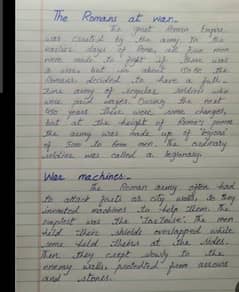 The Romans at war.
The great Roman Empire
was created by the army. In the
earlier days of Rome, all free men
were made to fight if there was
a war, but in about 150 BC the
Romans decided to have a full
time army of regular soldiers who
were paid wages. During the next
450 years there were some changes,
but at the height of Rome's power
the army was made up of 'legions'
of 5000 to 6000 men. The ordinary
soldier was called a legionary.
War machines.
The Roman army often had
to attack forts or city walls, so they
invented machines to help them. The
simplest was the "Tortoise". The men
held their shields overlapped while
some held theirs at the sides.
Then they crept slowly to the
enemy walls, protected from arrows
and stones.